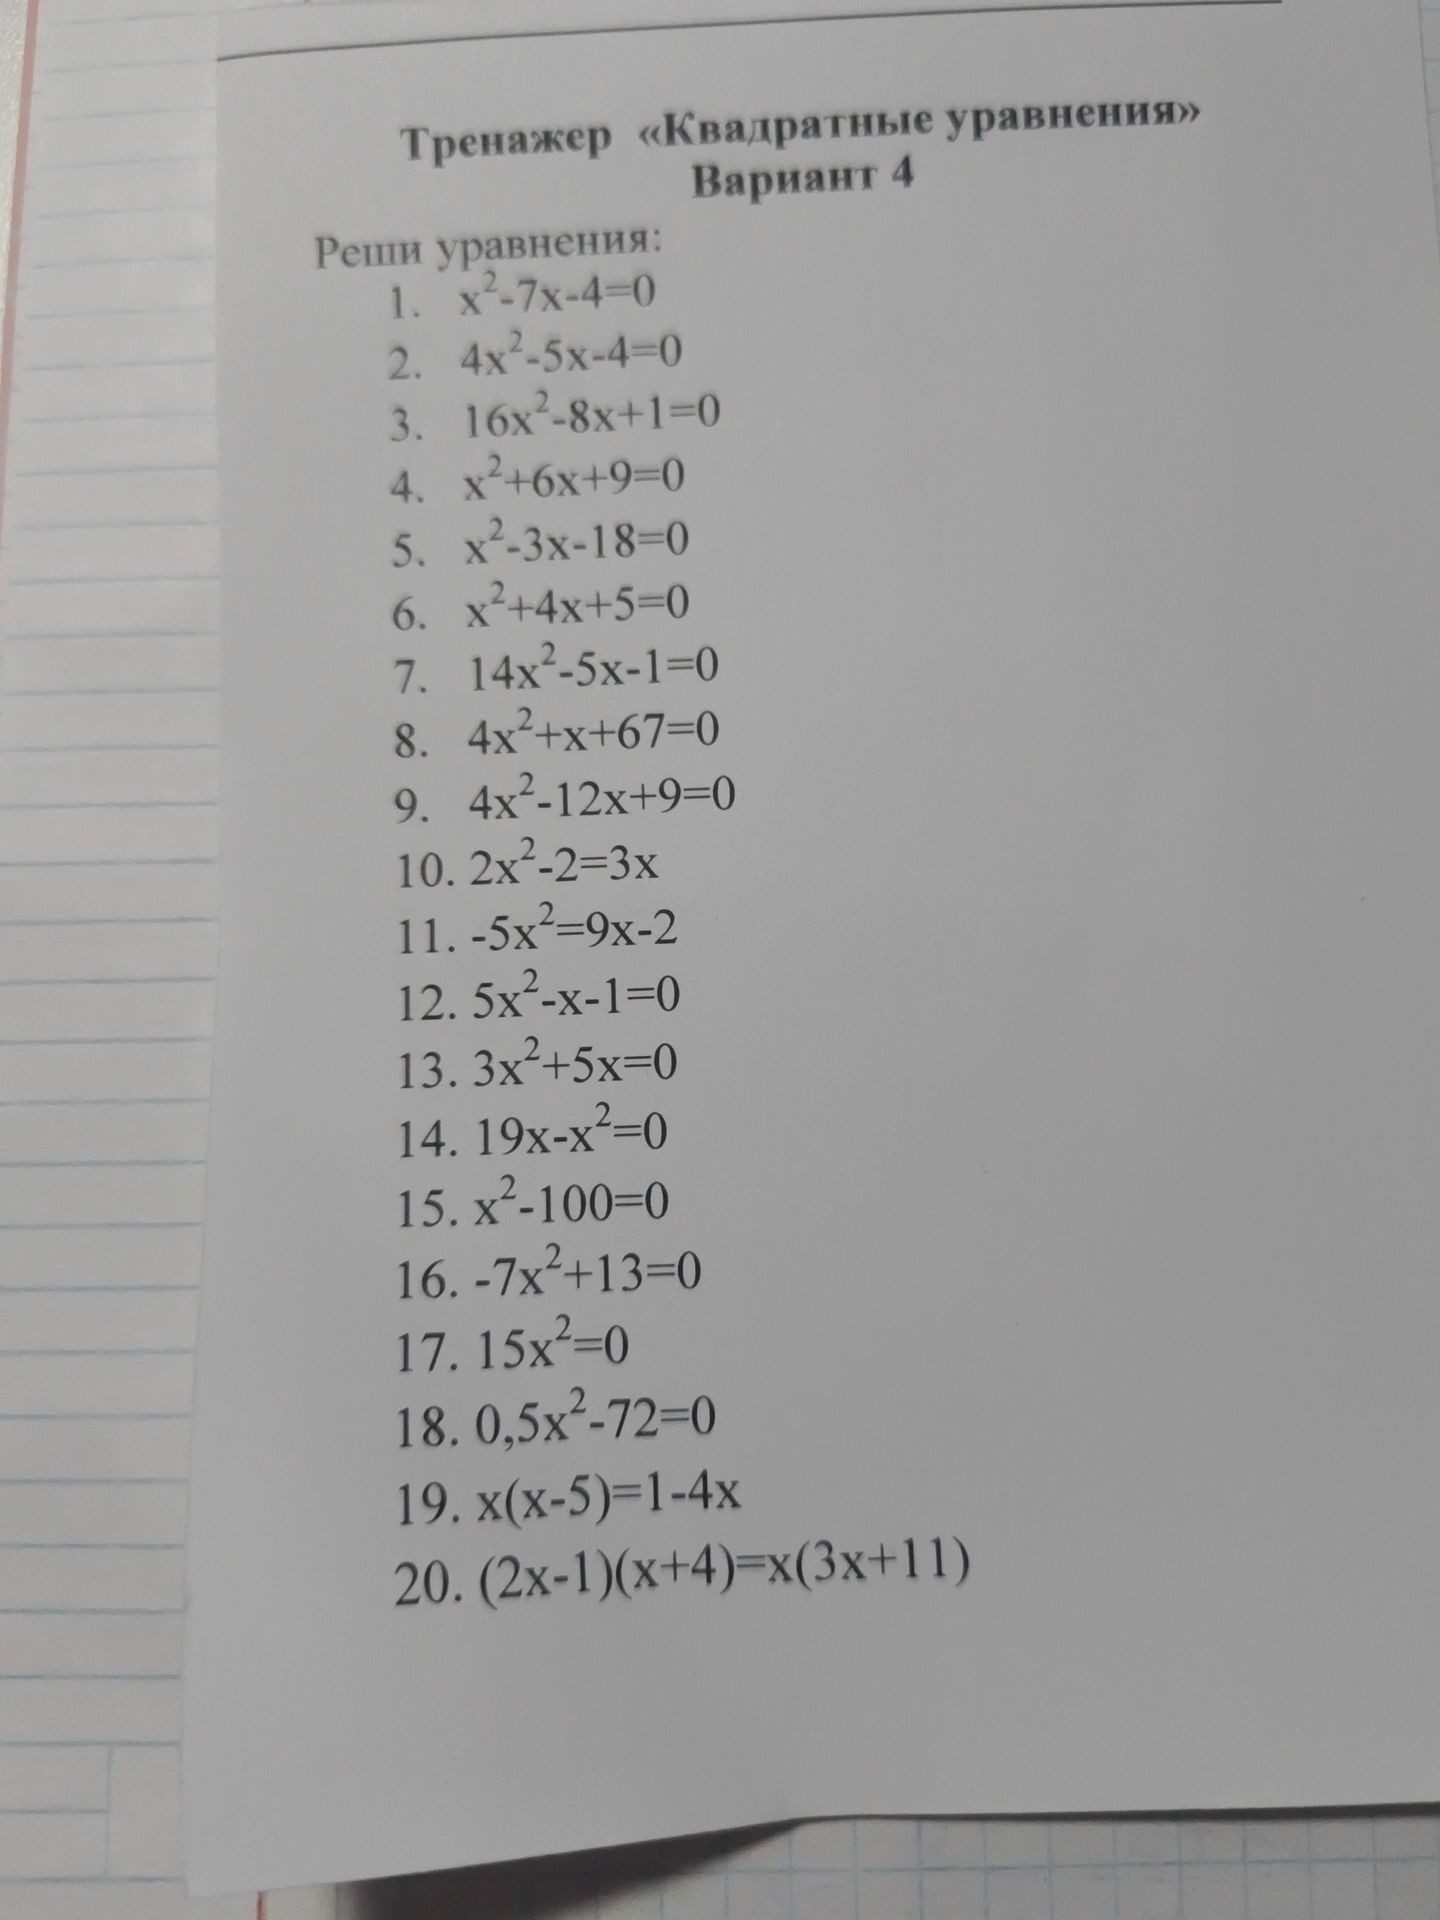 Тренажер «Квадратные уравнения»
Вариант 4
Реши уравнения:
1. x²-7x-4=0
2. 4x²-5x-4=0
3. 16x²-8x+1=0
4. x²+6x+9=0
5. x²-3x-18=0
6. x²+4x+5=0
7. 14x²-5x-1=0
8. 4x²+x+67=0
9. 4x²-12x+9=0
10. 2x²-2=3x
11. -5x²=9x-2
12. 5x²-x-1=0
13. 3x²+5x=0
14. 19x-x²=0
15. x²-100=0
16. -7x²+13=0
17. 15x²=0
18. 0,5x²-72=0
19. x(x-5)=1-4x
20. (2x-1)(x+4)=x(3x+11)